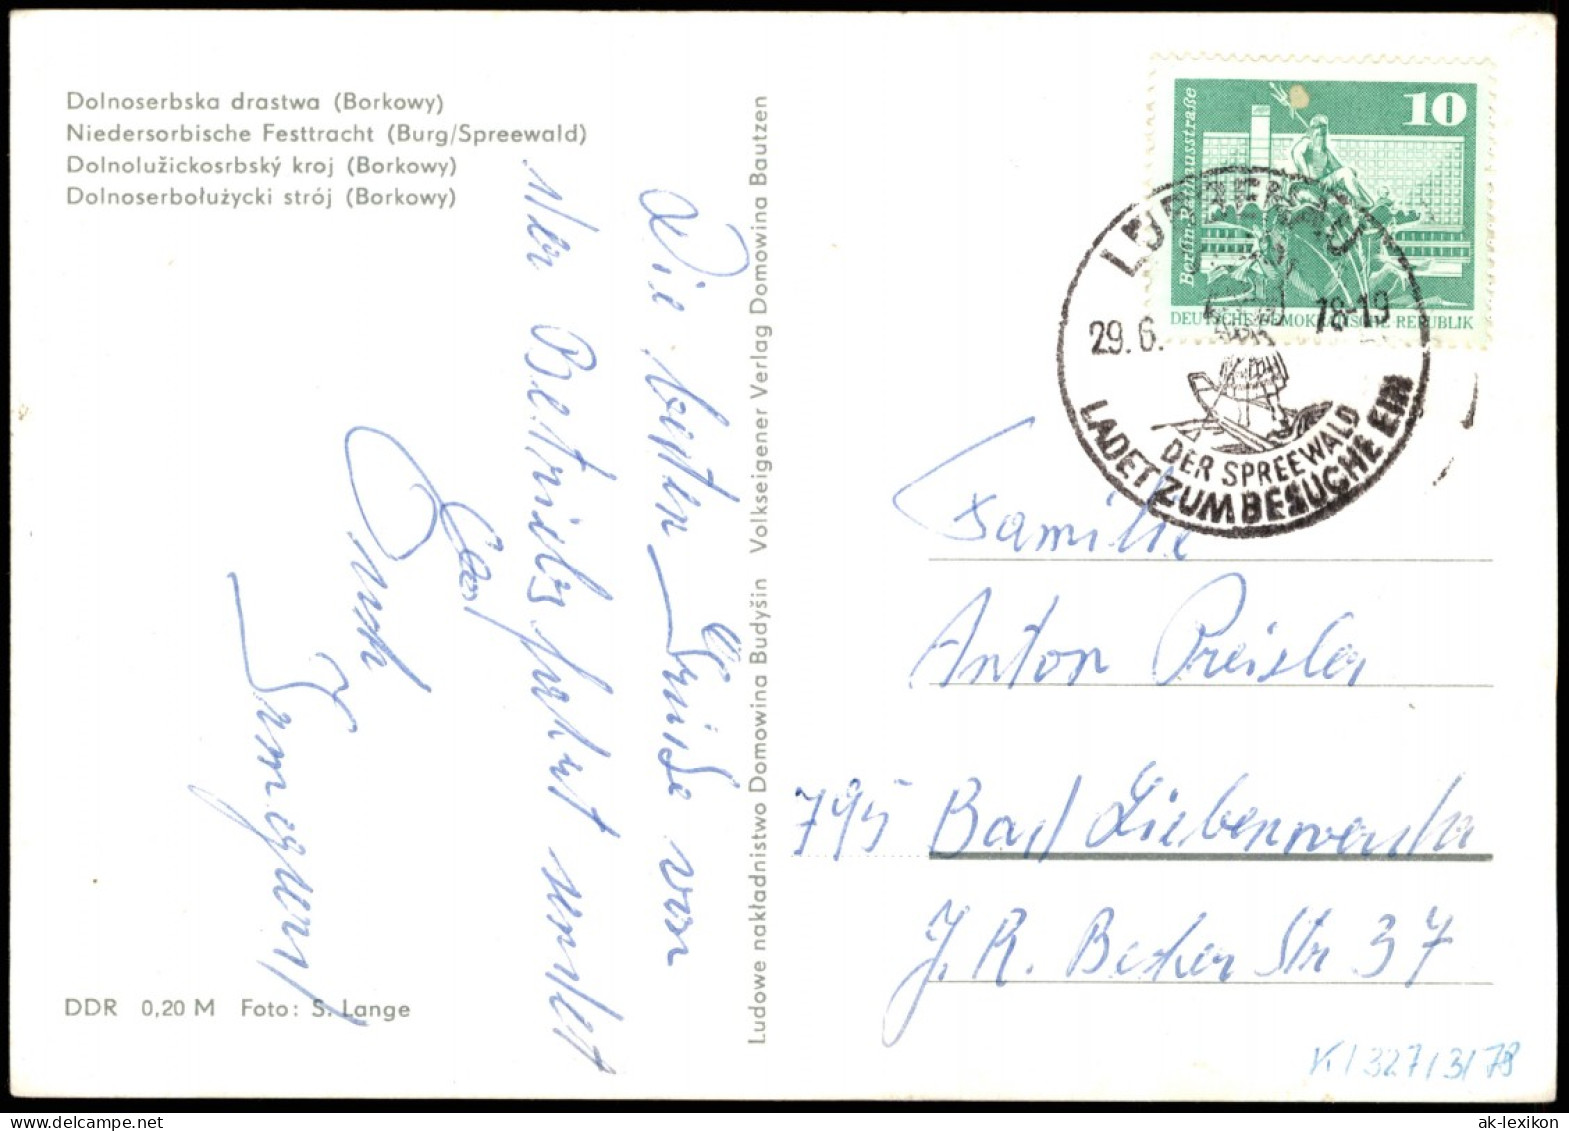 Dolnoserbska drastwa (Borkowy)
Niedersorbische Festtracht (Burg/Spreewald)
Dolnolužickosrbský kroj (Borkowy)
Dolnoserbołużycki strój (Borkowy)
Die besten Grüße von
der Betriebsfahrt sendet
Euch
DDR 0,20 M Foto: S. Lange
Ludowe nakładnistwo Domowina Budyšin Volkseigener Verlag Domowina Bautzen
10
Berlin-Rathausstraße
DEUTSCHE DEMOKRATISCHE REPUBLIK
29.6. 18-19
DER SPREEWALD
LADET ZUM BESUCHE EIN
Familie
Anton Preisler
795 Bad Liebenwerda
J. R. Becher Str 37
K/327/3/78
ak-lexikon